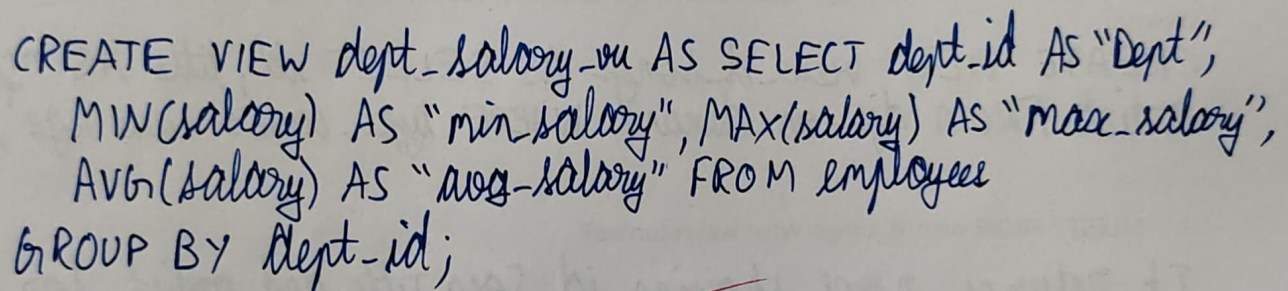 CREATE VIEW dept_salary_vu AS SELECT dept_id AS "Dept",
MIN(salary) AS "min_salary", MAX(salary) AS "max_salary",
AVG(salary) AS "avg_salary" FROM employees
GROUP BY dept_id;